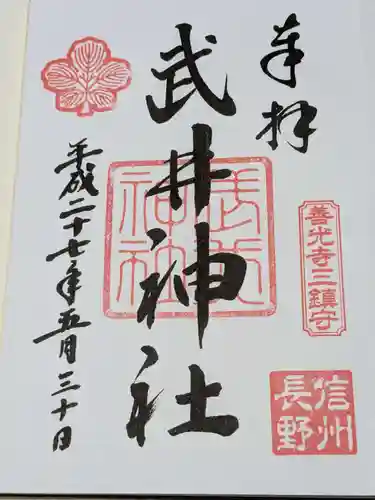 奉拝
善光寺三鎮守
信州
長野
武井神社
武井
神社
平成二十七年五月三十日